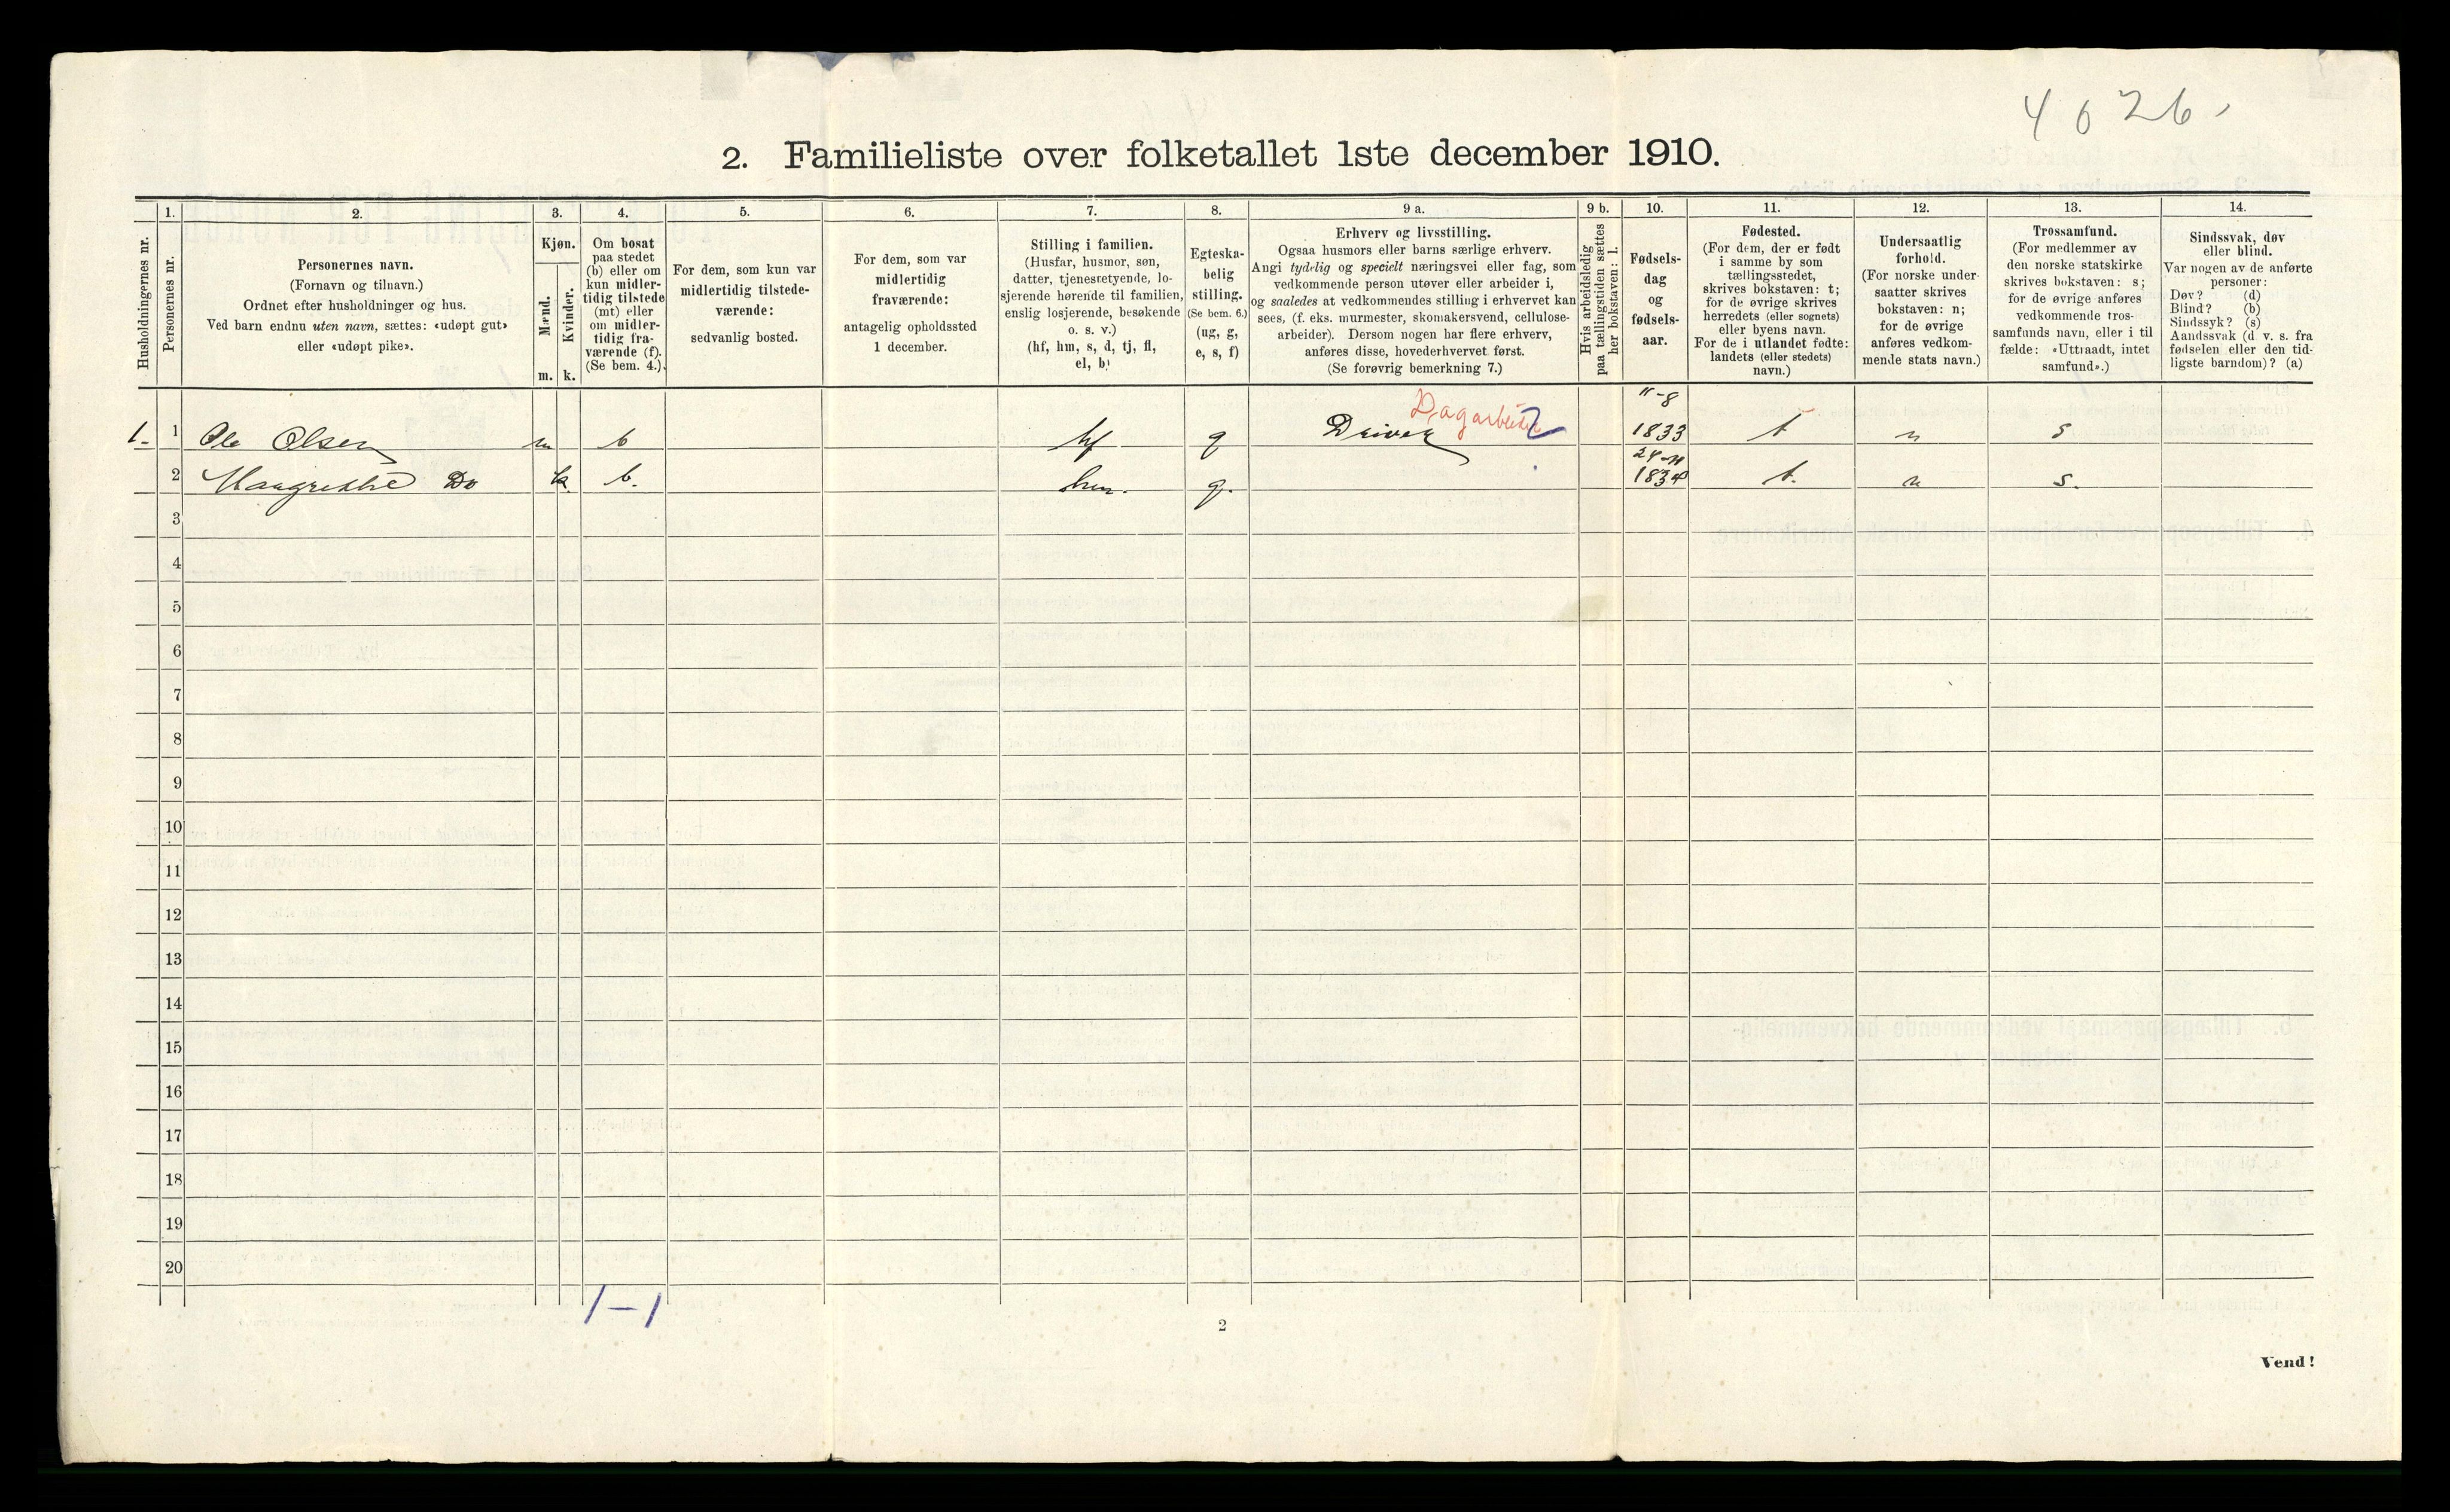 4626.
2. Familieliste over folketallet 1ste december 1910.
Husholdningernes nr.
1.
Personernes nr.
2.
Personernes navn.
(Fornavn og tilnavn.)
Ordnet efter husholdninger og hus.
Ved barn endnu uten navn, sættes: «udøpt gut»
eller «udøpt pike».
3.
Kjøn.
Mænd.
Kvinder.
m. k.
4.
Om bosat
paa stedet
(b) eller om
kun midler-
tidig tilstede
(mt) eller
om midler-
tidig fra-
værende (f).
(Se bem. 4.)
5.
For dem, som kun var
midlertidig tilstede-
værende:
sedvanlig bosted.
6.
For dem, som var
midlertidig
fraværende:
antagelig opholdssted
1 december.
7.
Stilling i familien.
(Husfar, husmor, søn,
datter, tjenestetyende, lo-
sjerende hørende til familien,
enslig losjerende, besøkende
o. s. v.)
(hf, hm, s, d, tj, fl,
el, b)
8.
Egteska-
belig
stilling.
(Se bem. 6.)
(ug, g,
e, s, f)
9 a.
Erhverv og livsstilling.
Ogsaa husmors eller barns særlige erhverv.
Angi tydelig og specielt næringsvei eller fag, som
vedkommende person utøver eller arbeider i,
og saaledes at vedkommendes stilling i erhvervet kan
sees, (f. eks. murmester, skomakersvend, cellulose-
arbeider). Dersom nogen har flere erhverv,
anføres disse, hovederhvervet først.
(Se forøvrig bemerkning 7.)
9 b.
Hvis arbeidsledig
paa tællingstiden sættes
her bokstaven: l.
10.
Fødsels-
dag
og
fødsels-
aar.
11.
Fødested.
(For dem, der er født
i samme by som
tællingsstedet,
skrives bokstaven: t;
for de øvrige skrives
herredets (eller sognets)
eller byens navn.
For de i utlandet fødte:
landets (eller stedets)
navn.)
12.
Undersaatlig
forhold.
(For norske under-
saatter skrives
bokstaven: n;
for de øvrige
anføres vedkom-
mende stats navn.)
13.
Trossamfund.
(For medlemmer av
den norske statskirke
skrives bokstaven: s;
for de øvrige anføres
vedkommende tros-
samfunds navn, eller i til
fælde: «Uttraadt, intet
samfund».)
14.
Sindssvak, døv
eller blind.
Var nogen av de anførte
personer:
Døv? (d)
Blind? (b)
Sindssyk? (s)
Aandssvak (d v. s. fra
fødselen eller den tid-
ligste barndom)? (a)
1. 1 Ole Olsen m b hf g Driver Dagarbeider 11-8 1833 t n s
2 Maagrethe Do k. b. hm. g. 1834 t. n s.
3
4
5
6
7
8
9
10
11
12
13
14
15
16
17
18
19
20
1-1
2
Vend!